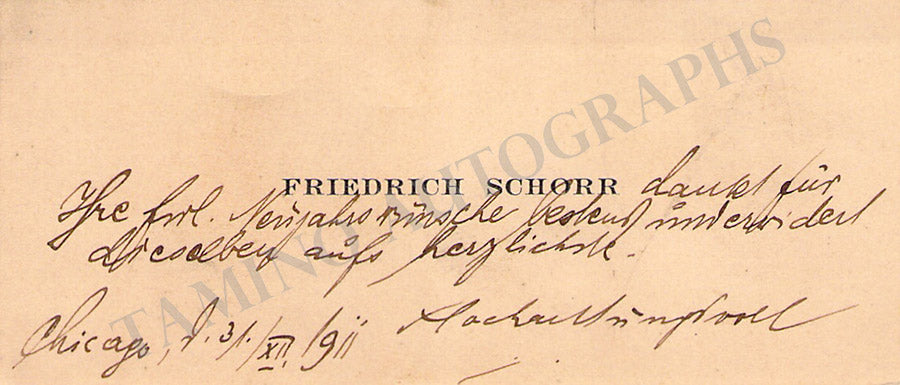 FRIEDRICH SCHORR dankt für
Ihre frdl. Neujahrswünsche bestens und erwidert
dieselben aufs herzlichste.
Chicago, d. 31./XII. 1911 Hochachtungsvoll
TAMINO AUTOGRAPHS